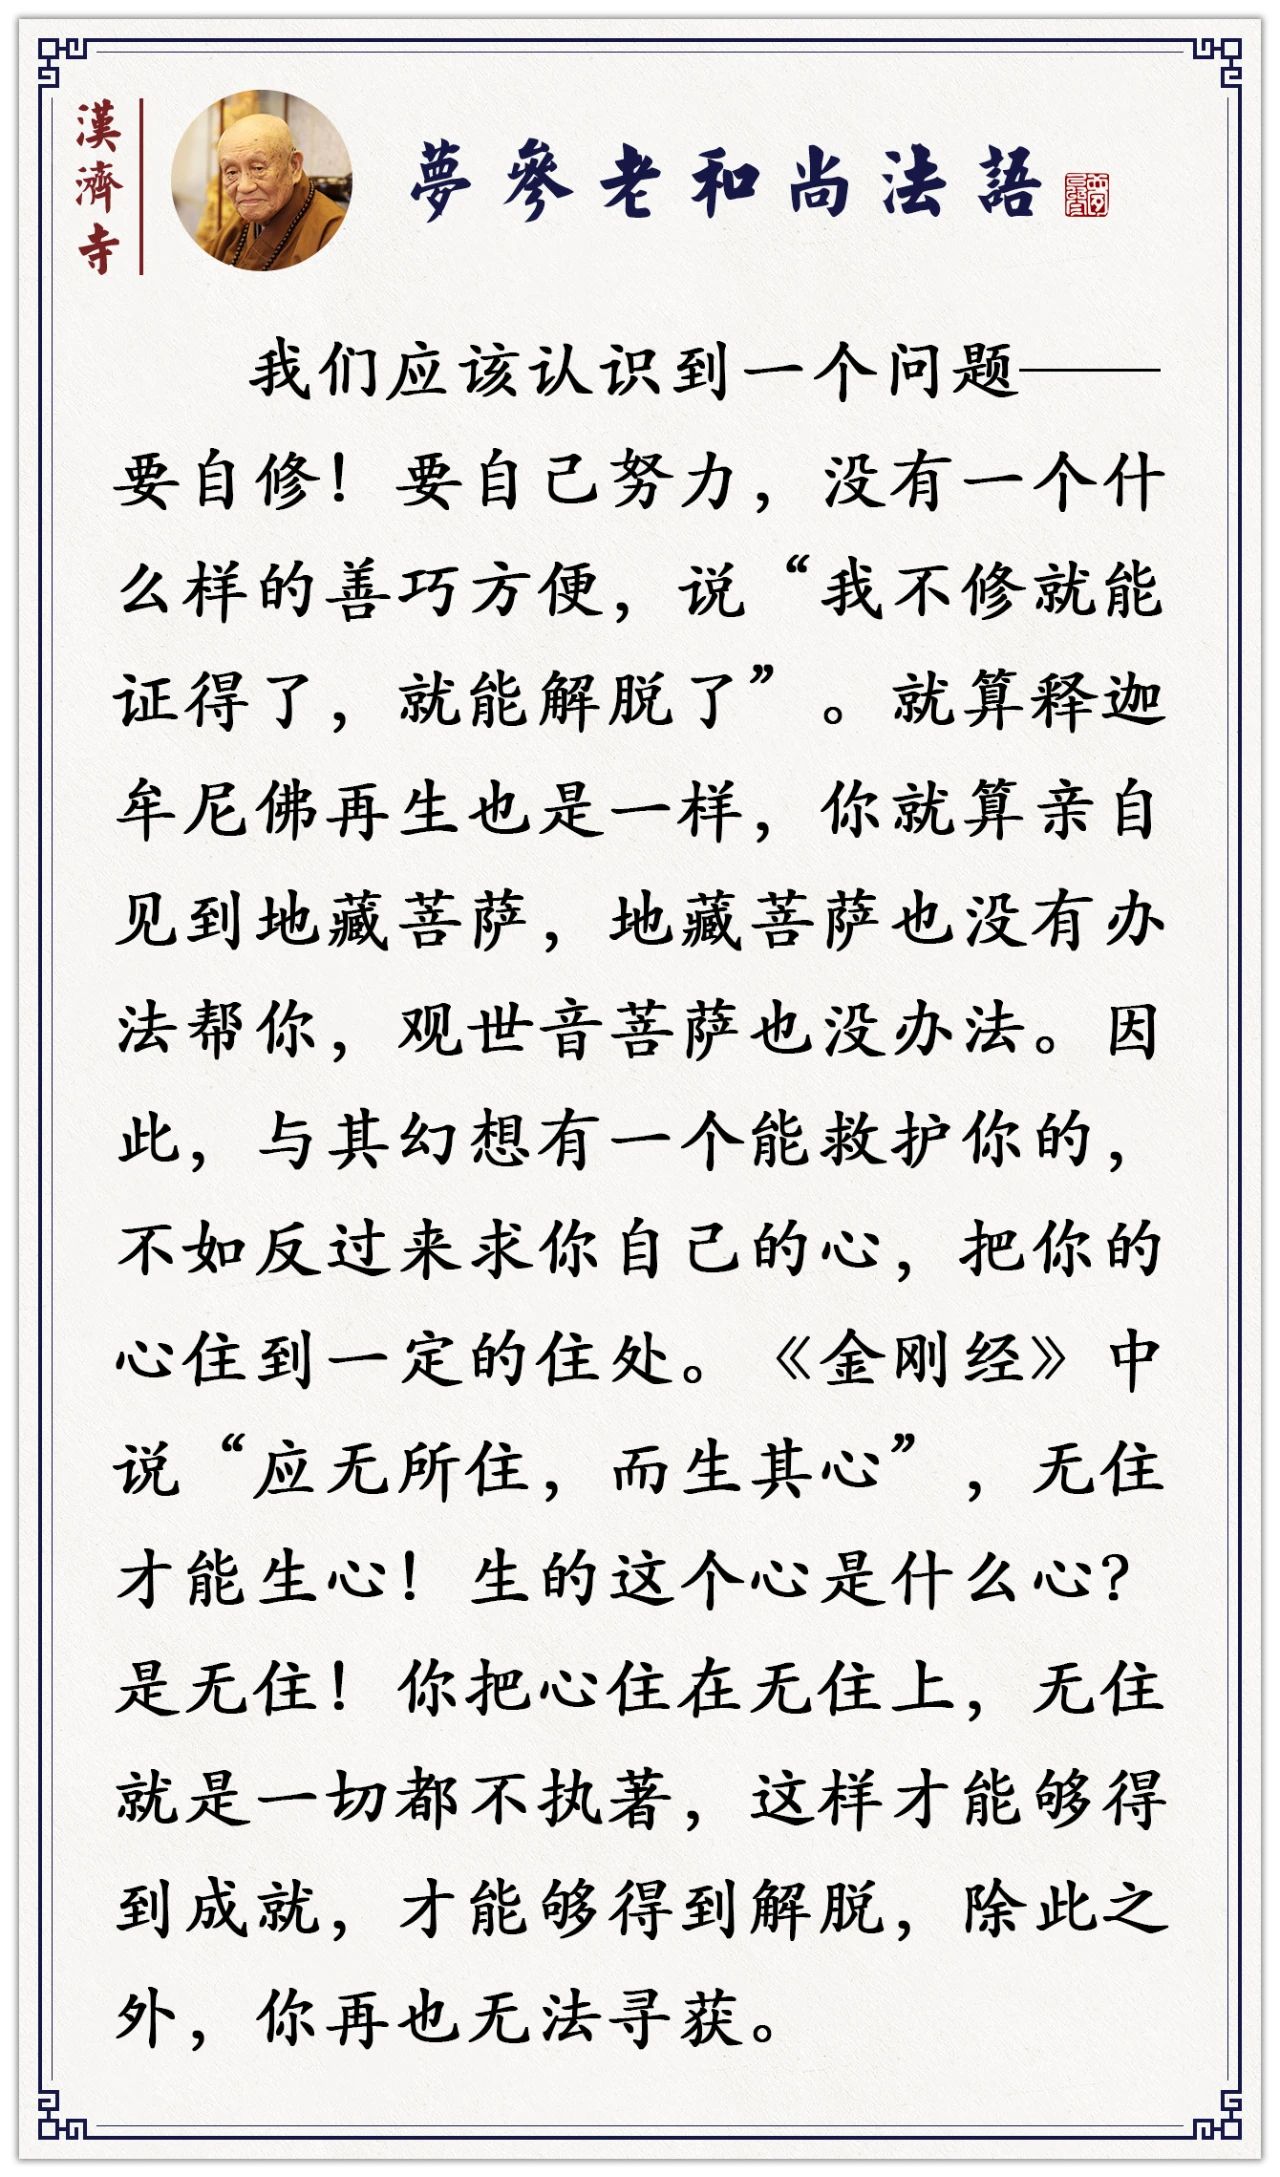 漢濟寺
夢參老和尚法語
我们应该认识到一个问题——
要自修！要自己努力，没有一个什
么样的善巧方便，说“我不修就能
证得了，就能解脱了”。就算释迦
牟尼佛再生也是一样，你就算亲自
见到地藏菩萨，地藏菩萨也没有办
法帮你，观世音菩萨也没办法。因
此，与其幻想有一个能救护你的，
不如反过来求你自己的心，把你的
心住到一定的住处。《金刚经》中
说“应无所住，而生其心”，无住
才能生心！生的这个心是什么心？
是无住！你把心住在无住上，无住
就是一切都不执著，这样才能够得
到成就，才能够得到解脱，除此之
外，你再也无法寻获。